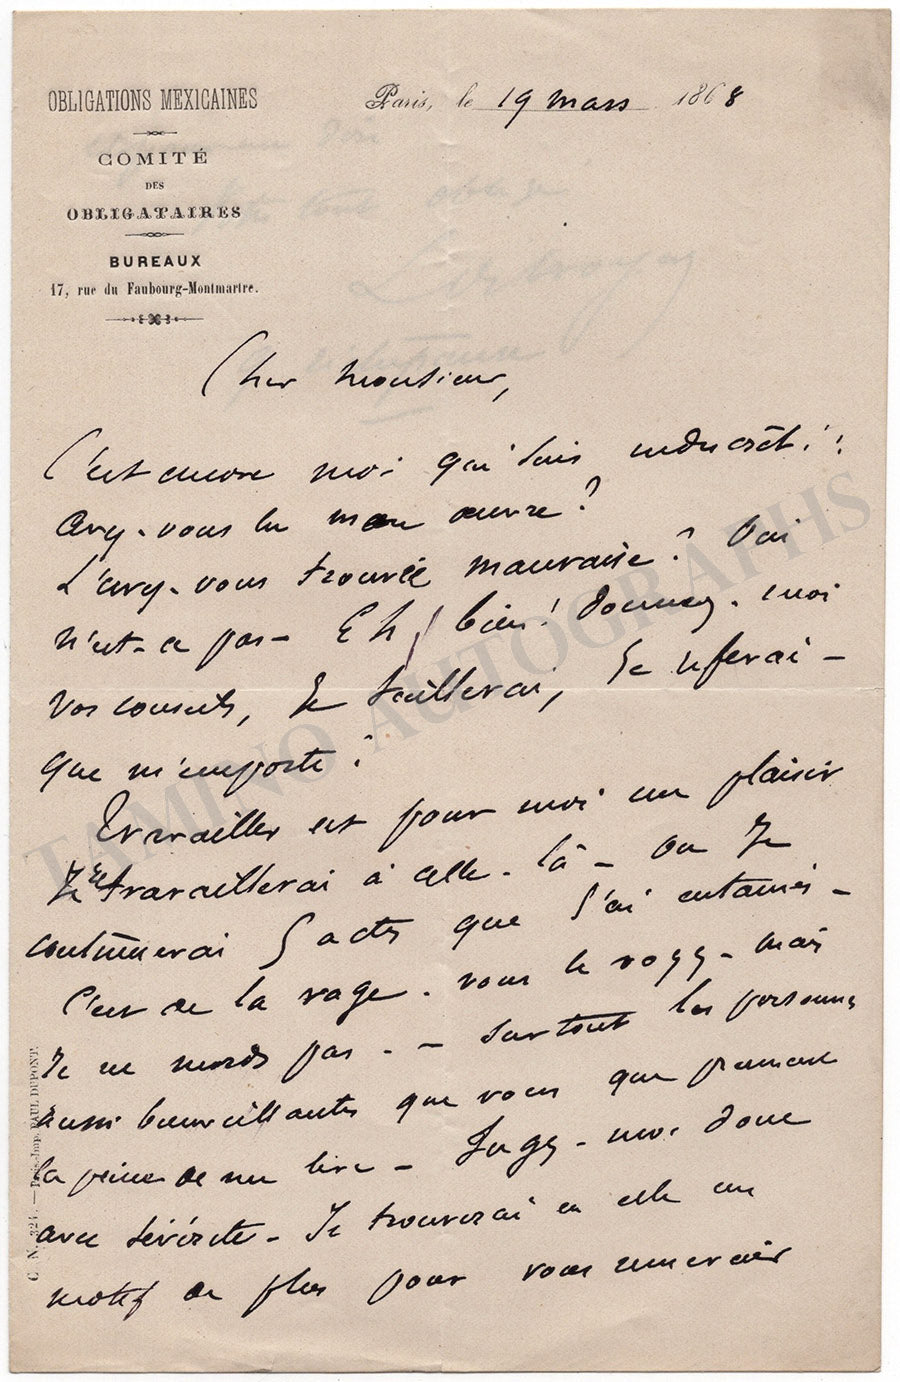 OBLIGATIONS MEXICAINES
COMITÉ
DES
OBLIGATAIRES
BUREAUX
17, rue du Faubourg-Montmartre.
Paris, le 19 mars 1868
Cher Monsieur,
C'est encore moi qui suis indiscrèt!!
Avez-vous lu mon œuvre?
L'avez-vous trouvée mauvaise? Oui
n'est-ce pas - Eh bien! donnez-moi
vos conseils, Je taillerai, Je referai -
que m'importe!
Travailler est pour moi un plaisir
Je retravaillerai à celle-là - ou Je
continuerai 5 actes que j'ai entamés -
C'est de la rage - vous le voyez - mais
Je ne mords pas - - surtout les personnes
aussi bienveillantes que vous qui prennent
la peine de me lire - Jugez-moi donc
avec sévérité - Je trouverai en elle un
motif de plus pour vous remercier
C. N. 324. — Paris-Imp. PAUL DUPONT.
TAMINO AUTOGRAPHS